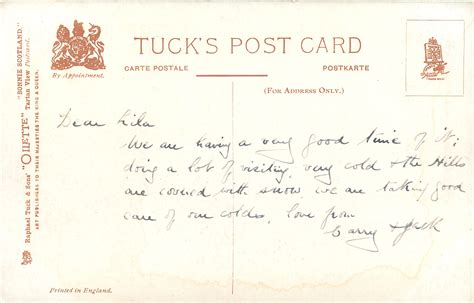 TUCK'S POST CARD
CARTE POSTALE
POSTKARTE
(FOR ADDRESS ONLY.)
By Appointment.
"BONNIE SCOTLAND."
Raphael Tuck & Sons' "OILETTE" Tartan View Postcard.
ART PUBLISHERS TO THEIR MAJESTIES THE KING & QUEEN.
Dear Lila
We are having a very good time of it;
doing a lot of visiting, very cold & the Hills
are covered with snow we are taking good
care of our colds, love from
Carry & Jack
Printed in England.